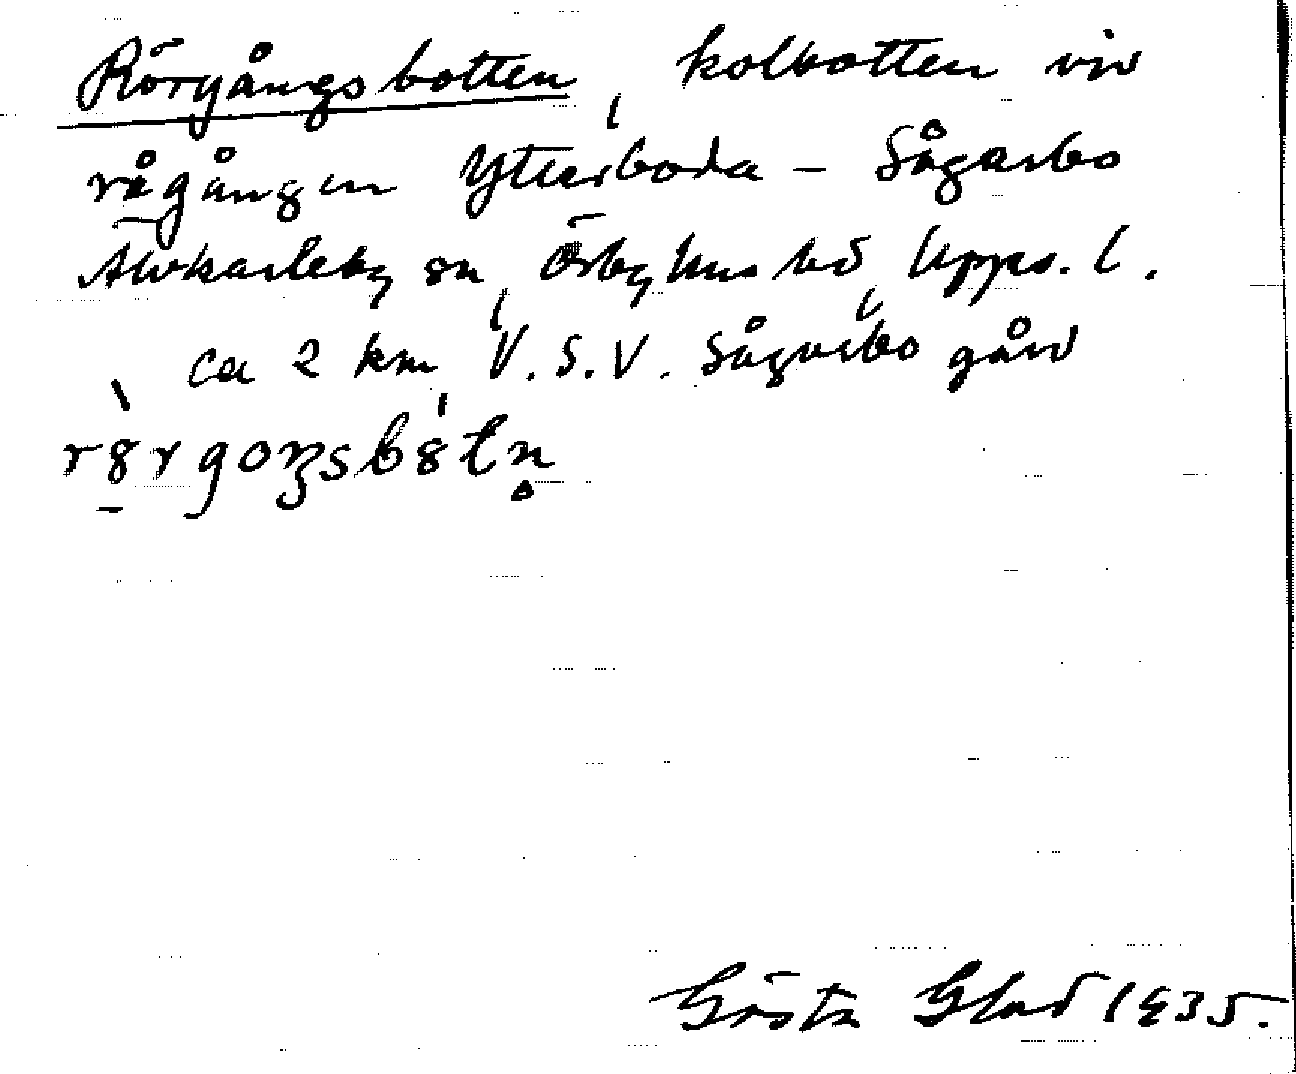 Rörgångsbotten, kolbotten vid
rågången Ytterboda - Sågarbo
Älvkarleby sn, Örbyhus hd, Upps. l.
ca 2 km V.S.V. Sågarbo gård
Gösta Glad 1935.